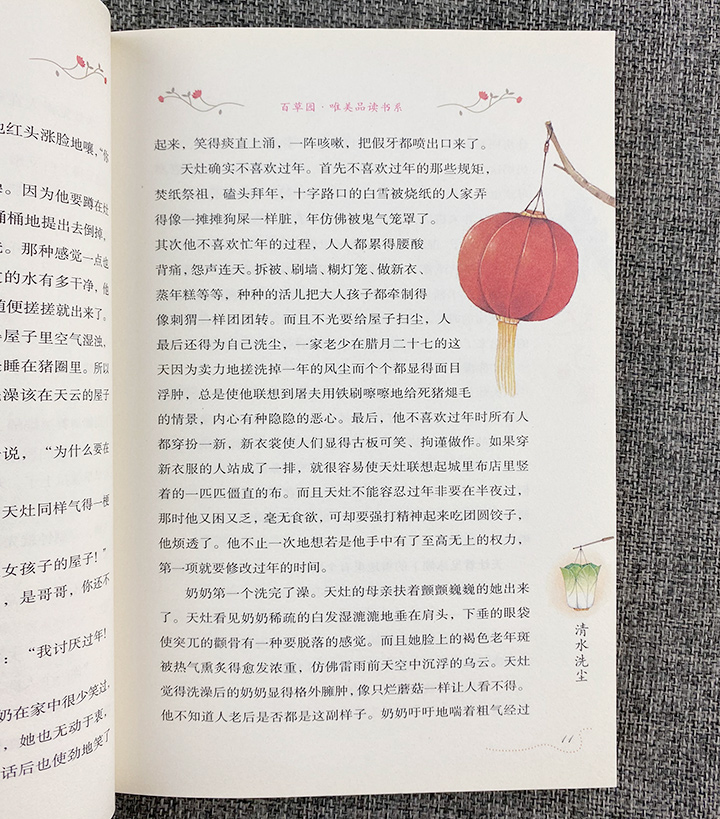 红头涨脸地嚷，“你
。因为他要蹲在灶
桶桶地提出去倒掉，
。那种感觉一点也
的水有多干净，他
随便搓搓就出来了。
屋子里空气湿浊，
睡在猪圈里。所以
澡该在天云的屋子
说，“为什么要在
天灶同样气得一梗
女孩子的屋子！”
，是哥哥，你还不
：“我讨厌过年！
奶在家中很少笑过，
，她也无动于衷，
话后也使劲地笑了
百草园·唯美品读书系
起来，笑得痰直上涌，一阵咳嗽，把假牙都喷出口来了。
天灶确实不喜欢过年。首先不喜欢过年的那些规矩，
焚纸祭祖，磕头拜年，十字路口的白雪被烧纸的人家弄
得像一摊摊狗屎一样脏，年仿佛被鬼气笼罩了。
其次他不喜欢忙年的过程，人人都累得腰酸
背痛，怨声连天。拆被、刷墙、糊灯笼、做新衣、
蒸年糕等等，种种的活儿把大人孩子都牵制得
像刺猬一样团团转。而且不光要给屋子扫尘，人
最后还得为自己洗尘，一家老少在腊月二十七的这
天因为卖力地搓洗掉一年的风尘而个个都显得面目
浮肿，总是使他联想到屠夫用铁刷嚓嚓地给死猪煺毛
的情景，内心有种隐隐的恶心。最后，他不喜欢过年时所有人
都穿扮一新，新衣裳使人们显得古板可笑、拘谨做作。如果穿
新衣服的人站成了一排，就很容易使天灶联想起城里布店里竖
着的一匹匹僵直的布。而且天灶不能容忍过年非要在半夜过，
那时他又困又乏，毫无食欲，可却要强打精神起来吃团圆饺子，
他烦透了。他不止一次地想若是他手中有了至高无上的权力，
第一项就要修改过年的时间。
奶奶第一个洗完了澡。天灶的母亲扶着颤颤巍巍的她出来
了。天灶看见奶奶稀疏的白发湿漉漉地垂在肩头，下垂的眼袋
使突兀的颧骨有一种要脱落的感觉。而且她脸上的褐色老年斑
被热气熏炙得愈发浓重，仿佛雷雨前天空中沉浮的乌云。天灶
觉得洗澡后的奶奶显得格外臃肿，像只烂蘑菇一样让人看不得。
他不知道人老后是否都是这副样子。奶奶吁吁地喘着粗气经过
清水洗尘
11